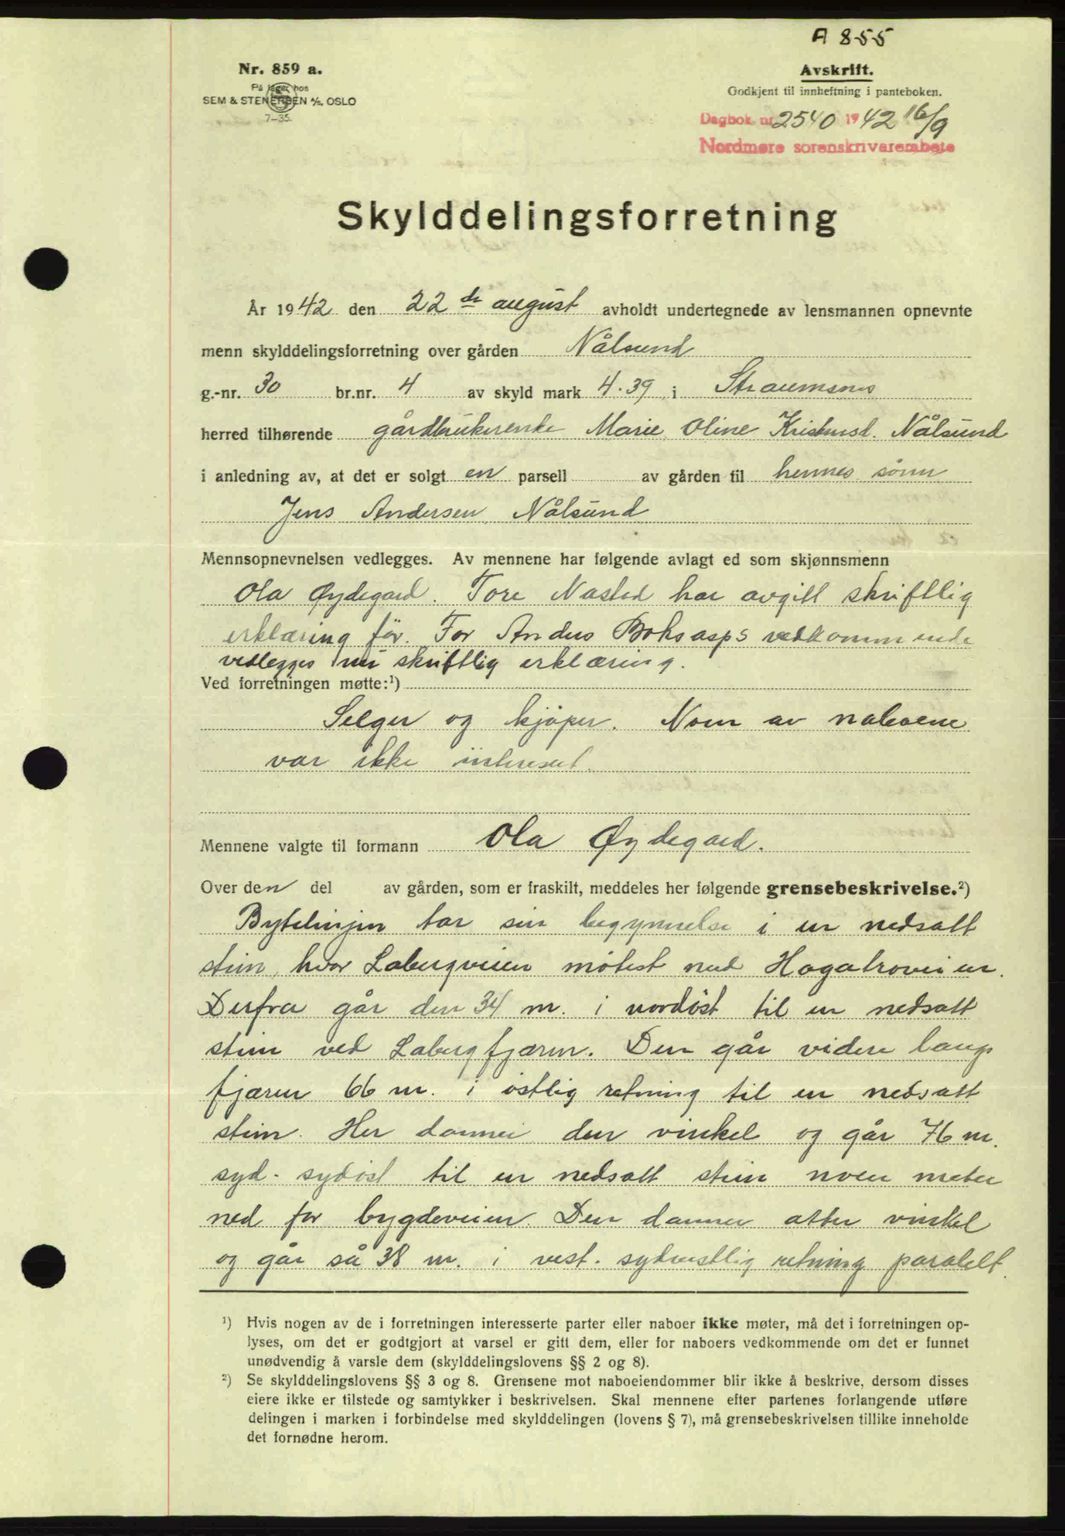 A 855
Nr. 859 a.
På lager hos
SEM & STENERSEN A/S, OSLO
7-35.
Avskrift.
Godkjent til innheftning i panteboken.
Dagbok nr. 2540 1942 16/9
Nordmøre sorenskriverembete
Skylddelingsforretning
År 1942 den 22 de august avholdt undertegnede av lensmannen opnevnte
menn skylddelingsforretning over gården Nålsund
g.-nr. 30 br.nr. 4 av skyld mark 4.39 i Straumsnes
herred tilhørende gårdbrukerenke Marie Oline Kristensd. Nålsund
i anledning av, at det er solgt en parsell av gården til hennes sønn
Jens Andersen Nålsund
Mennsopnevnelsen vedlegges. Av mennene har følgende avlagt ed som skjønnsmenn
Ola Øydegard. Tore Nastad har avgitt skriftlig
erklæring før. For Anders Boksasps vedkommende
vedlegges nu skriftlig erklæring.
Ved forretningen møtte:¹)
Selger og kjøper. Noen av naboene
var ikke interesert.
Mennene valgte til formann Ola Øydegard.
Over den del av gården, som er fraskilt, meddeles her følgende grensebeskrivelse.²)
Bytelinjen tar sin begynnelse i en nedsatt
stein, hvor Labergveien møtest med Hagatroveien.
Derfra går den 34 m. i nordøst til en nedsatt
stein ved Labergfjæren. Den går videre langs
fjæren 66 m. i østlig retning til en nedsatt
stein. Her danner den vinkel og går 76 m.
syd-sydøst til en nedsatt stein noen meter
ned for bygdeveien. Den danner atter vinkel
og går så 38 m. i vest-sydvestlig retning paralelt
¹) Hvis nogen av de i forretningen interesserte parter eller naboer ikke møter, må det i forretningen op-
lyses, om det er godtgjort at varsel er gitt dem, eller for naboers vedkommende om det er funnet
unødvendig å varsle dem (skylddelingslovens §§ 2 og 8).
²) Se skylddelingslovens §§ 3 og 8. Grensene mot naboeiendommer blir ikke å beskrive, dersom disses
eiere ikke er tilstede og samtykker i beskrivelsen. Skal mennene efter partenes forlangende utføre
delingen i marken i forbindelse med skylddelingen (lovens § 7), må grensebeskrivelsen tillike inneholde
det fornødne herom.